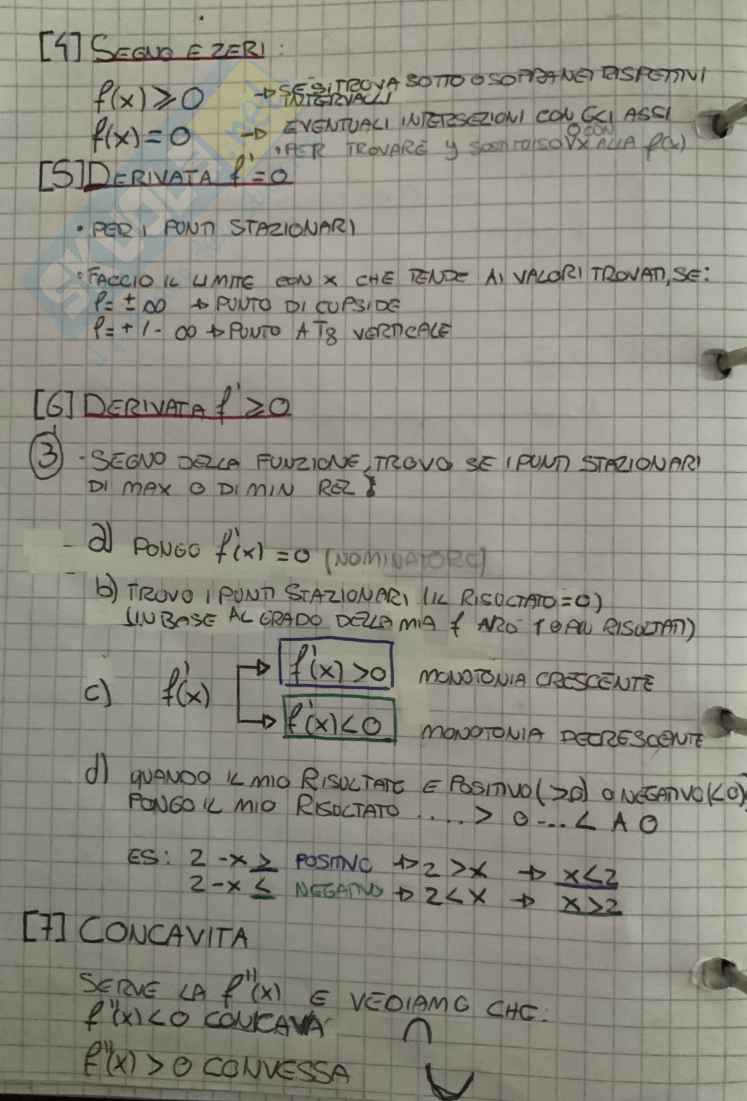 [4] SEGNO E ZERI:
f(x) ≥ 0 → SE SI TROVA SOTTO O SOPRA NEI RISPETTIVI
INTERVALLI
f(x) = 0 → EVENTUALI INTERSEZIONI CON GLI ASSI
• PER TROVARE y SOSTITUISCO
[5] DERIVATA f' = 0
• PER I PUNTI STAZIONARI
• FACCIO IL LIMITE CON X CHE TENDE AI VALORI TROVATI, SE:
l = ± ∞ → PUNTO DI CUPSIDE
l = + / - ∞ → PUNTO A Tg VERTICALE
[6] DERIVATA f' ≥ 0
③ - SEGNO DELLA FUNZIONE, TROVO SE I PUNTI STAZIONARI
DI MAX O DI MIN REL
- a) PONGO f'(x) = 0 (NOMINATORE)
- b) TROVO I PUNTI STAZIONARI (IL RISULTATO = 0)
(IN BASE AL GRADO DELLA MIA f AVRÒ 1 O PIÙ RISULTATI)
f'(x) > 0 MONOTONIA CRESCENTE
c) f'(x)
f'(x) < 0 MONOTONIA DECRESCENTE
d) QUANDO IL MIO RISULTATO E POSITIVO (>0) O NEGATIVO (<0)
PONGO IL MIO RISULTATO ..... > 0 ... < A 0
ES: 2 - x ≥ POSITIVO → 2 > x → x < 2
2 - x ≤ NEGATIVO → 2 < x → x > 2
[7] CONCAVITA
SERVE LA f''(x) E VEDIAMO CHE:
f''(x) < 0 CONCAVA ∩
f''(x) > 0 CONVESSA ∪
SKUOLA.net